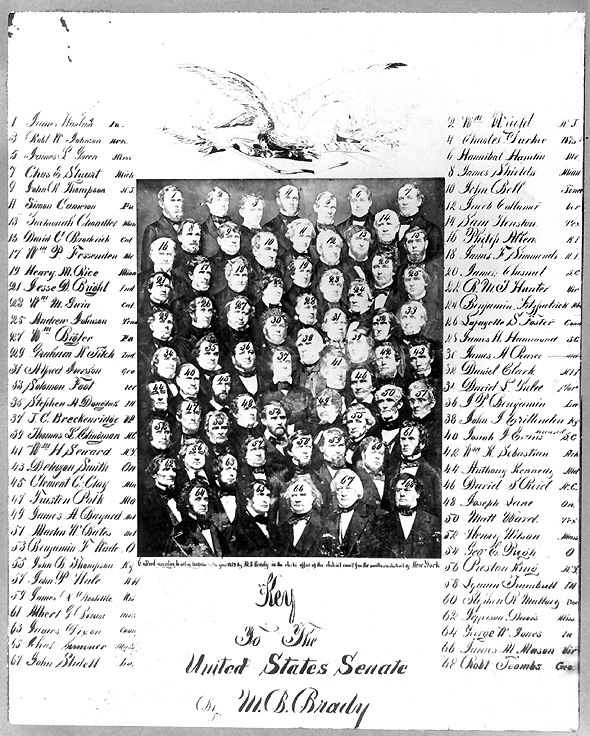 1 James Harlan Ia.
3 Robt W Johnson Ark.
5 James S Green Miss
7 Chas E Stuart Mich
9 John R Thompson N.J.
11 Simon Cameron Pa
13 Zachariah Chandler Mich
15 David C Broderick Cal
17 Wm P Fessenden Me
19 Henry M. Rice Minn
21 Jesse D Bright Ind
23 Wm M. Gwin Cal
25 Andrew Johnson Tenn
27 Wm Bigler Pa
29 Graham N Fitch Ind
31 Alfred Iverson Geo
33 Solomon Foot Ver
35 Stephen A Douglas Ill
37 J. C. Breckenridge VP
39 Thomas L. Clingman NC
41 Wm H Seward N.Y.
43 Delazon Smith On
45 Clement C. Clay
47 Trusten Polk Mo
49 James A. Bayard Del
51 Martin W Bates Del
53 Benjamin F Wade O
55 John B Thompson Ky
57 John P Hale N H
59 James Doolittle Wis
61 Albert G Brown Miss
63 James Dixon Conn
65 Chas Sumner Mass
67 John Slidell Lou
2 Wm Wright N. J.
4 Charles Durkee Wis
6 Hannibal Hamlin Me
8 James Shields Minn
10 John Bell Tenn
12 Jacob Collamer Ver
14 Sam Houston Tex
16 Philip Allen R I
18 James F Simmonds R I
20 James Chesnut S.C.
22 R M T Hunter Vir
24 Benjamin Fitzpatrick Ala
26 Lafayette S Foster Conn
28 James H Hammond S C
31 James A Pearce
32 Daniel Clark N H
34 David L Yulee Flor
36 J P Benjamin Lou
38 John J Crittenden Ky
40 Josiah J Evans S.C.
42 Wm K Sebastian Ark
44 Anthony Kennedy Md
46 David S Reid N.C.
48 Joseph Lane On
50 Matt Ward Tex
52 Henry Wilson Mass
54 Geo E Pugh O
56 Preston King N.Y
58 Lyman Trumbull Ill
60 Stephen R Mallory Flor
62 Jefferson Davis Miss
64 George W Jones Ia
66 James M Mason Vir
68 Robt Toombs Geo
Entered according to act of Congress in the year 1859 by M B Brady in the clerks office of the district court for the southern district of New York
Key
To The
United States Senate
By M. B. Brady